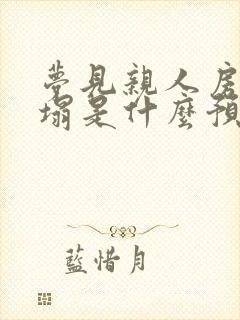 夢見親人房
塌是什麼預
藍惜月